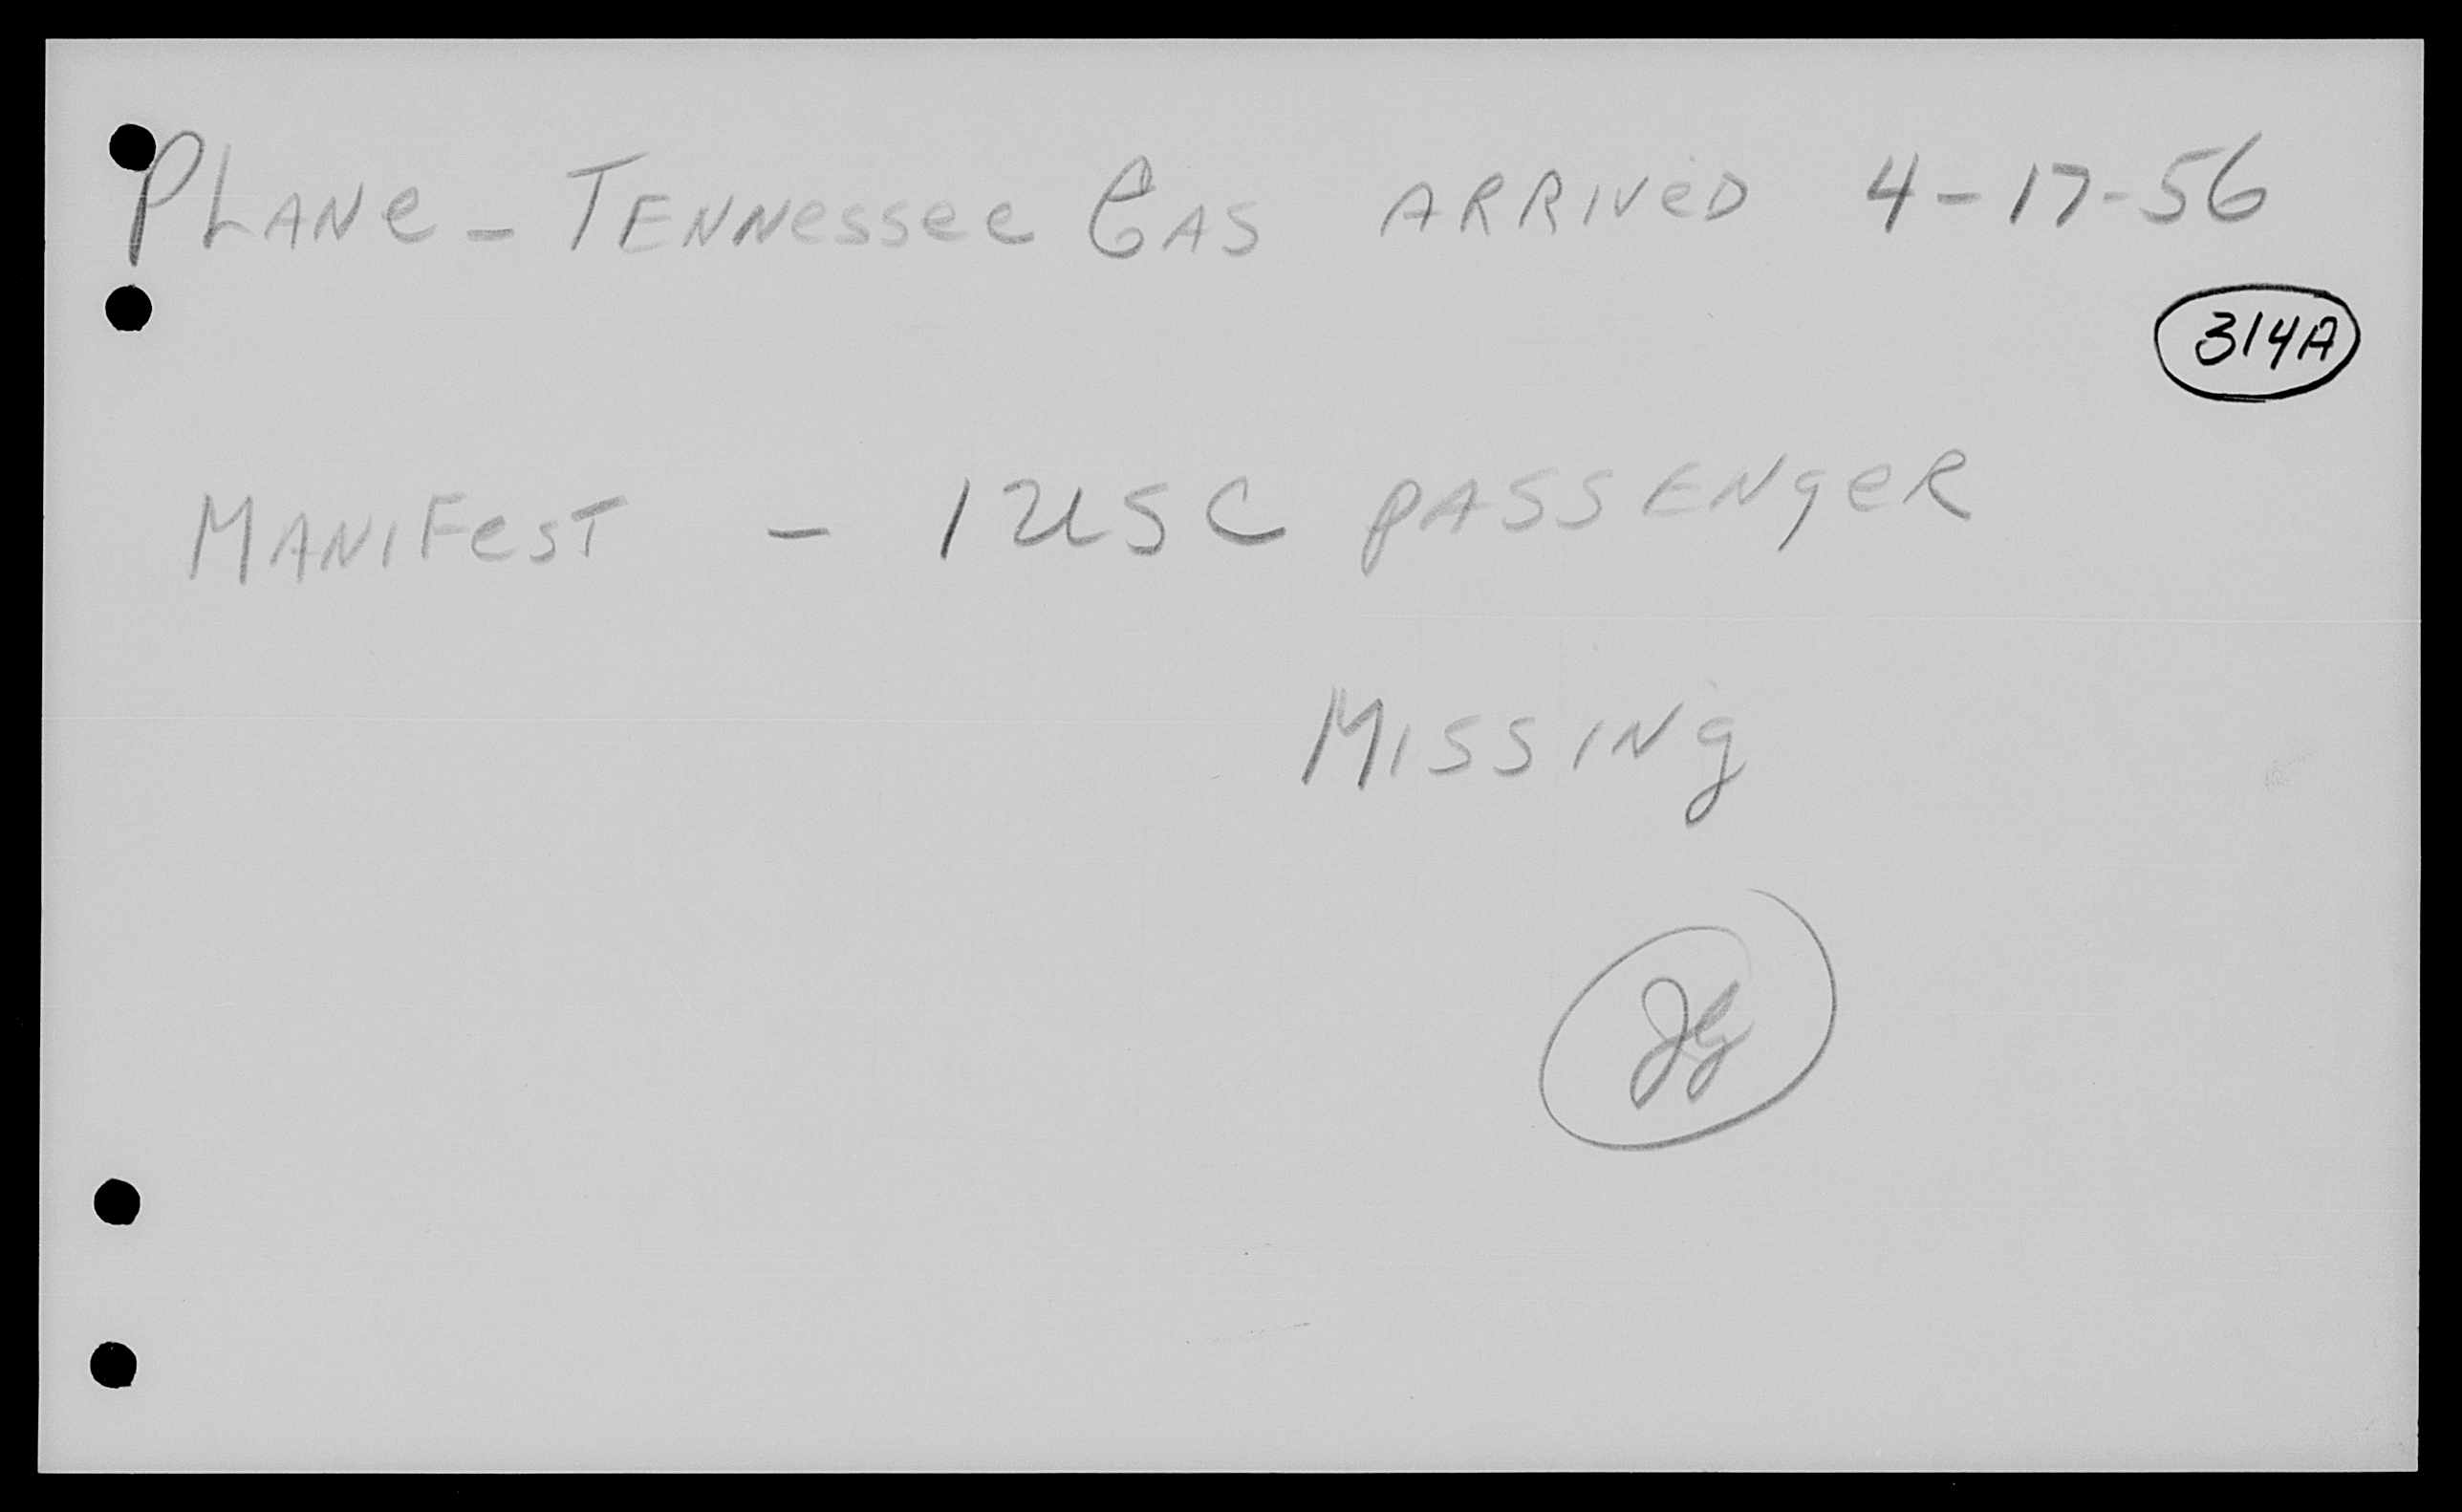 PLANe - TENNessee GAS ARRIVeD 4-17-56
314A
MANIFesT - 1 USC PASSENgeR
MISSINg
JG